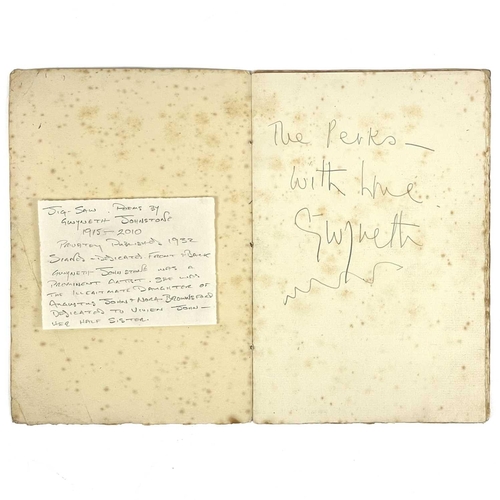 JIG-SAW. POEMS BY
GWYNETH JOHNSTONE
1915-2010
PRIVATELY PUBLISHED 1932
SIGNED - DEDICATED FRONT & BACK
GWYNETH JOHNSTONE WAS A
PROMINENT ARTIST. SHE WAS
THE ILLEGITIMATE DAUGHTER OF
AUGUSTUS JOHN & NORA BROWNSFORD
DEDICATED TO VIVIEN JOHN -
HER HALF SISTER.
The Perks —
with love
Gwyneth